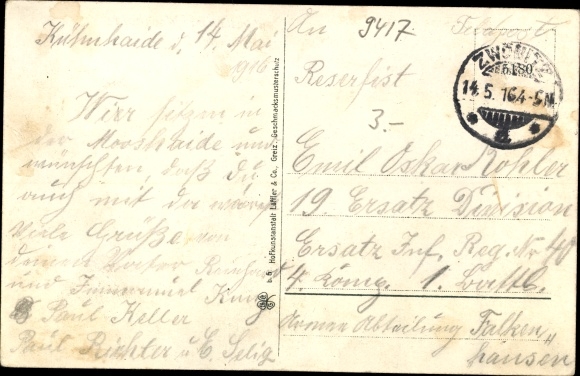 Kühnhaide d. 14. Mai
916
Wir sitzen in
der Mooshaide und
wünschten, daß Du
auch mit da wärst
Viele Grüße von
deinem Vater
und Immanuel
Paul Keller
Paul Richter u. E. Selig
b. 6 Hofkunstanstalt Löffler & Co., Greiz. Geschmacksmusterschutz
An 9417 Feldpost
Reserfist
3.-
Emil Oskar Köhler
19 Ersatz Division
Ersatz Inf. Reg. Nr 40
4. König. 1. Battl.
Armee Abteilung Falken„
hausen
ZWÖNITZ
14.5.16.4-5N.